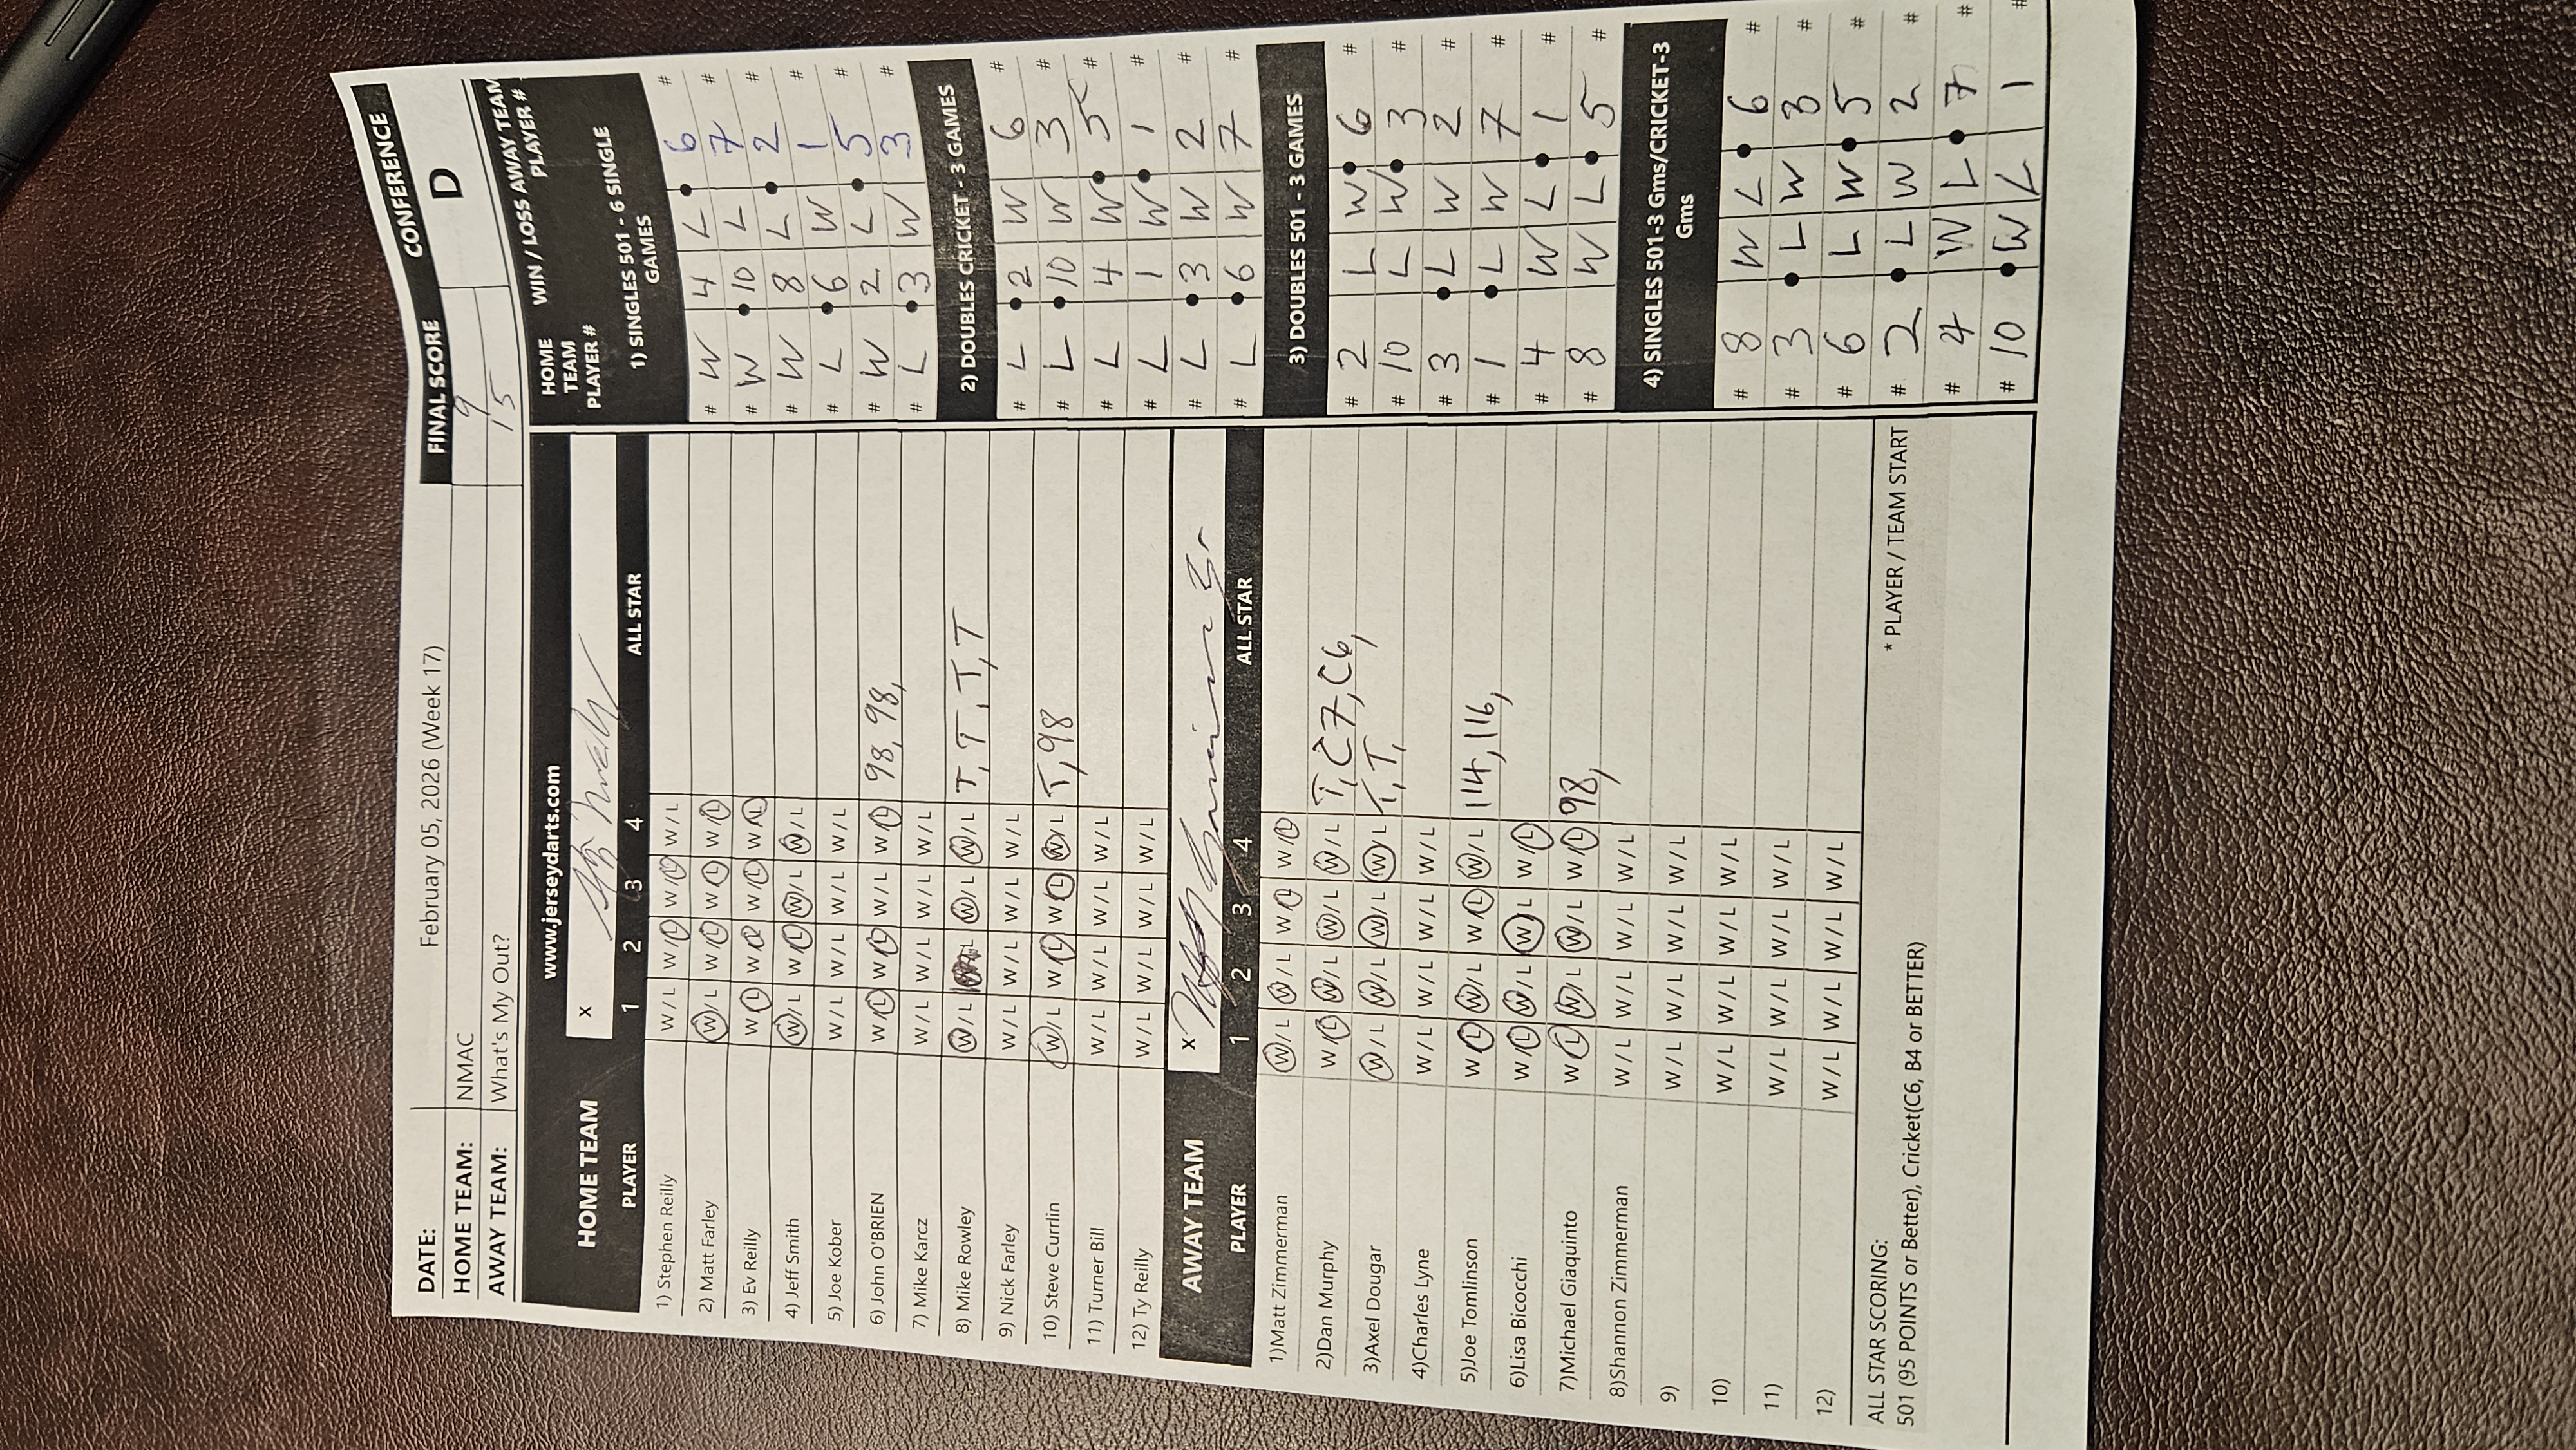 DATE: February 05, 2026 (Week 17) FINAL SCORE CONFERENCE
HOME TEAM: NMAC 9 D
AWAY TEAM: What's My Out? 15
www.jerseydarts.com
HOME TEAM x
PLAYER 1 2 3 4 ALL STAR
1) Stephen Reilly W / L W / L W / L W / L
2) Matt Farley W / L W / L W / L W / L
3) Ev Reilly W / L W / L W / L W / L
4) Jeff Smith W / L W / L W / L W / L
5) Joe Kober W / L W / L W / L W / L
6) John O'BRIEN W / L W / L W / L W / L 98, 98,
7) Mike Karcz W / L W / L W / L W / L
8) Mike Rowley W / L L W / L W / L T, T, T, T, T
9) Nick Farley W / L W / L W / L W / L
10) Steve Currlin W / L W / L W / L W / L T, 98
11) Turner Bill W / L W / L W / L W / L
12) Ty Reilly W / L W / L W / L W / L
AWAY TEAM x
PLAYER 1 2 3 4 ALL STAR
1)Matt Zimmerman W / L W / L W / L W / L
2)Dan Murphy W / L W / L W / L W / L T, C7, C6,
3)Axel Dougar W / L W / L W / L W / L T, T,
4)Charles Lyne W / L W / L W / L W / L
5)Joe Tomlinson W / L W / L W / L W / L 114, 116,
6)Lisa Bicocchi W / L W / L W / L W / L
7)Michael Giaquinto W / L W / L W / L W / L 98,
8)Shannon Zimmerman W / L W / L W / L W / L
9) W / L W / L W / L W / L
10) W / L W / L W / L W / L
11) W / L W / L W / L W / L
12) W / L W / L W / L W / L
ALL STAR SCORING: * PLAYER / TEAM START
501 (95 POINTS or Better), Cricket(C6, B4 or BETTER)
HOME TEAM PLAYER # WIN / LOSS AWAY TEAM PLAYER #
1) SINGLES 501 - 6 SINGLE GAMES
# W 4 L 6 #
# W 10 L 7 #
# W 8 L 2 #
# L 6 W 1 #
# W 2 L 5 #
# L 3 W 3 #
2) DOUBLES CRICKET - 3 GAMES
# L 2 W 6 #
# L 10 W 3 #
# L 4 W 5 #
# L 1 W 1 #
# L 3 W 2 #
# L 6 W 7 #
3) DOUBLES 501 - 3 GAMES
# 2 L W 6 #
# 10 L W 3 #
# 3 L W 2 #
# 1 L W 7 #
# 4 W L 1 #
# 8 W L 5 #
4) SINGLES 501-3 Gms/CRICKET-3 Gms
# 8 W L 6 #
# 3 L W 3 #
# 6 L W 5 #
# 2 L W 2 #
# 4 W L 7 #
# 10 W L 1 #